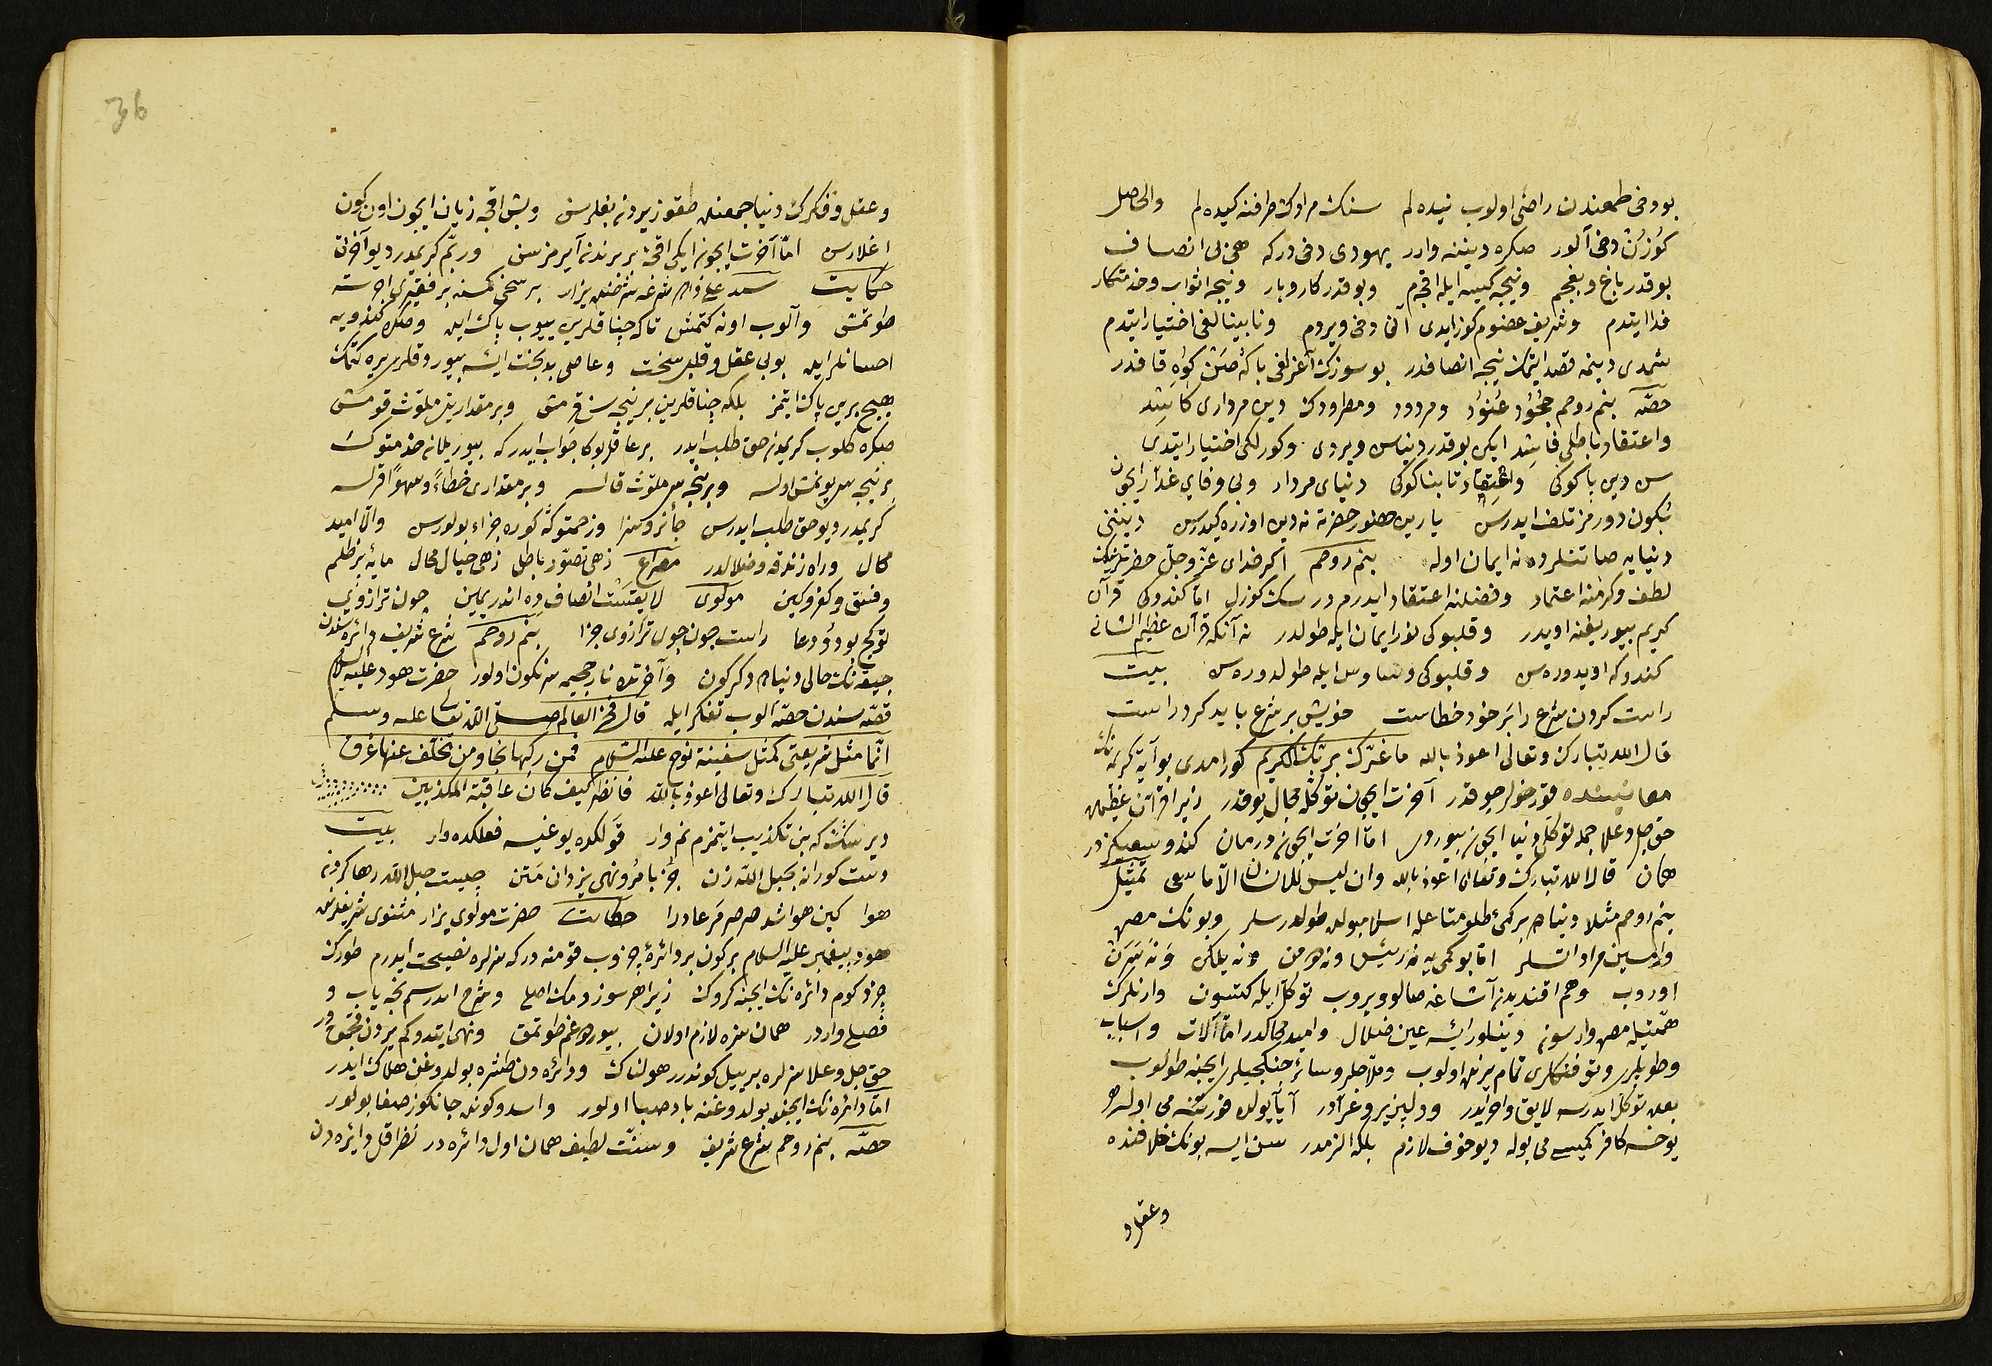 بو دخی طمعندن راضی اولوب نیده لم سنك مرادك طرفنه كیده لم والحاصل
كوزڭ دخی آلور صكره دیننه وارر یهودی دخی دركه هی بی انصاف
بو قدر باغ و بغچم و نیجه كیسه ایله اقچه م و بو قدر كار و بار و نیجه اثواب و خدمتكار
فدا ایتدم و شریف عضوم كوز ایدی آنی دخی ویردم و نابینالغی اختیار ایتدم
شمدی دینمه قصد ایتمك نیجه انصافدر بو سوزك آغزلغی باڭه
حصّه بنم روحم جحود عنود و مردود و مطرودك دین مرداری كاسد
و اعتقاد باطلی فاسد ایكن بو قدر دنیاسن ویردی و كورلكی اختیار ایتدی
سن دین پاكوڭی و اعتقاد تابناكوڭی دنیای مردار و بی وفای غدار ایچون
تلف ایدرسن یارین حضور حضرته نه دین اوزره كیدرسن دیننی
دنیایه صاتنلرده نه ایمان اوله بنم روحم اكر خدای عزّ و جلّ حضرتلرینك
لطف و كرمنه اعتماد و فضلنه اعتقاد ایدرم درسك كوزل امّا كندوڭی قرآن
كریم بیوردیغنه اویدر و قلبوڭی نور ایمان ایله طولدر نه آنكه قرآن عظیم الشانی
كندوڭه اویدوره سن و قلبوڭی وسواس ایله طولدوره سن بیت
راست كردن شرع را بر خود خطاست خویش بر شرع باید كرد راست
قال الله تبارك و تعالی اعوذ بالله ما غرّك بربّك الكریم كورامدی بو آیه كریمه نڭ
معناسنده قورخولر چوقدر آخرت ایچون توكله مجال یوقدر زیرا قرآن عظیمده
حق جل و علا جمله توكلی دنیا ایچون بیوردی امّا آخرت ایچون درمان كندو سعیكزدر
همان قال الله تبارك و تعالی اعوذ بالله و ان لیس للانسان الّا ما سعی تمثیل
بنم روحم مثلا دنیاده بر كمی طلو متاعله اسلامبولدن طولدرسلر و بونك مصره
وارمسین مراد اتسلر امّا بو كمی یه نه رئیس و نه دومن و نه یلكن و نه سرن
اوروب و هم افندیدن آشاغه صالویروب توكّل ایله كتسون وارنلرك
همّتیله مصره وارسون دینلور ایسه عین ضلال و امید محالدر امّا آلات و اسبابی
و طوپلر و توفنكلری تمام یرنده اولوب و ملّاحلر و سائر جنكجیلر ایچنه طولوب
بعده توكّل ایدرسه لایق و احرادر و دلپذیر و غرّادر آیا یولده فورتنه می اولور
یوخسه كافر كمیسی می بوله دیو خوف لازم بلكه الزمدر سن ایسه بونك خلافنده
و عقل و
و عقل و فكرك دنیا جمعنده طقوز یردن بغلرسن و بش اقچه زیان ایچون اون كون
اغلارسن امّا آخرت ایچون ایكی اقچه بربرندن آیرمزسن و ربّم كریمدر دیو آخرتی
حكایت سید علی زاده شرعه شرحنده یزار بر سخی كمسنه بر فقیری اجرته
طوتمش و آلوب اونه كتمش تاكه چناقلرین یییوب پاك ایده و صكره كندویه
احسانلر ایده بو بی عقل و قلبی سخت و عاصی بدبخت ایسه بیوردقلری یره كتمك
هیچ برین پاك ایتمز بلكه چناقلرین بر نیجه سن قرمش و بر مقدارین ملوّث قومش
صكره كلوب كریمدن حق طلب ایدر بر عاقل بوكا جواب ایدركه بیوریلانه خدمتوڭ
بر نیجه سی یونمش اولسه و بر نیجه سی ملوّث قالسه و بر مقداری خطاءً و سهوًا قرلسه
كریمدر دیو حق طلب ایدرسن جائز و سزا و زحمتوڭه كوره جزاء بولورسن و الّا امید
محال و راه زندقه و ضلالدر مصراع زهی تصوّر باطل زهی خیال محال مایهٔ بر ظلم
و فسق و كفر و كین مولوی لا یقتست انصاف ده اندر یمین چون ترازوی
تو كج بود و دغا راست چون جویی ترازوی جزا بنم روحم شرع شریف دائره سندن
چیقه نك حالی دنیاده دكركون و آخرتده نار جحیمه سرنكون اولور حضرت هود علیه السلام
قصّه سندن حصّه آلوب تفكر ایله قال فخر العالم صلّی الله تعالی علیه و سلم
انّما مثل شریعتی كمثل سفینة نوح علیه السلام فمن ركبها نجا و من تخلّف عنها غرق
قال الله تبارك و تعالی اعوذ بالله فانظر كیف كان عاقبة المكذبین
دیرسڭ كه بن تكذیب ایتمزم نم وار قولڭده یوغیسه فعلڭده وار بیت
دست كورانه بحبل الله زن جز بامر و نهی یزدان متن چیست حبل الله رها كردن
هوا كین هوا شد صرصری مر عاد را حكایت حضرت مولوی یزار مثنوی شریفلرنده
هود پیغمبر علیه السلام بر كون بر دائره چزوب قومنه دركه سزلره نصیحت ایدرم طورڭ
چزدوكم دائره نك ایچنه كروڭ زیرا هر سوزومڭ اصلی و شرح ایدرسم نیجه باب و
فصلی واردر همان سزه لازم اولان بیوردوغم طوتمق و نهی ایتدوكم یردن قچمقدر
حق جل و علا سزلره بر ییل كوندرر هولناك و دائره دن طشره بولدوغن هلاك ایدر
امّا دائره نك ایچنده بولدوغنه باد صبا اولور و اسدوكنده جانكوز صفا بولور
حصّه بنم روحم شرع شریف و سنّت لطیف همان اول دائره در نظر قل دائره دن
36